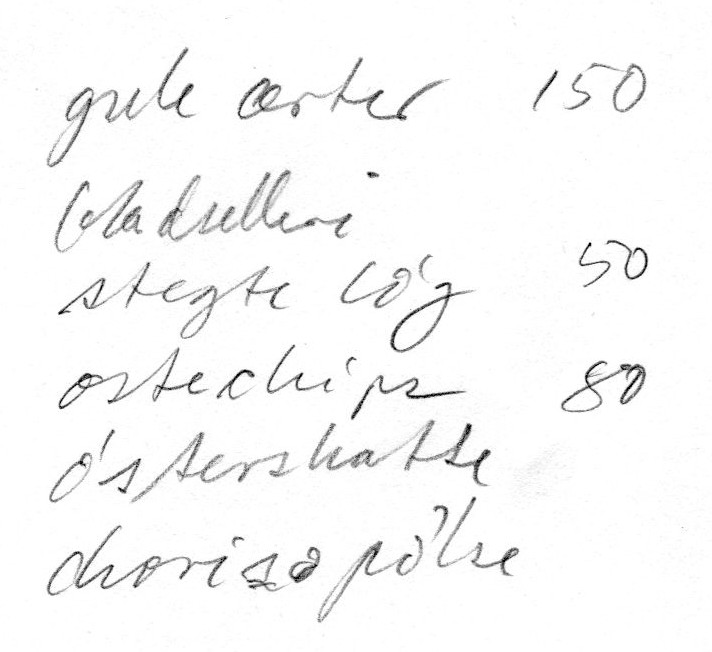 gule ærter 150
bladselleri
stegte lóg 50
ostechips 80
óstershatte
chorizo pólse